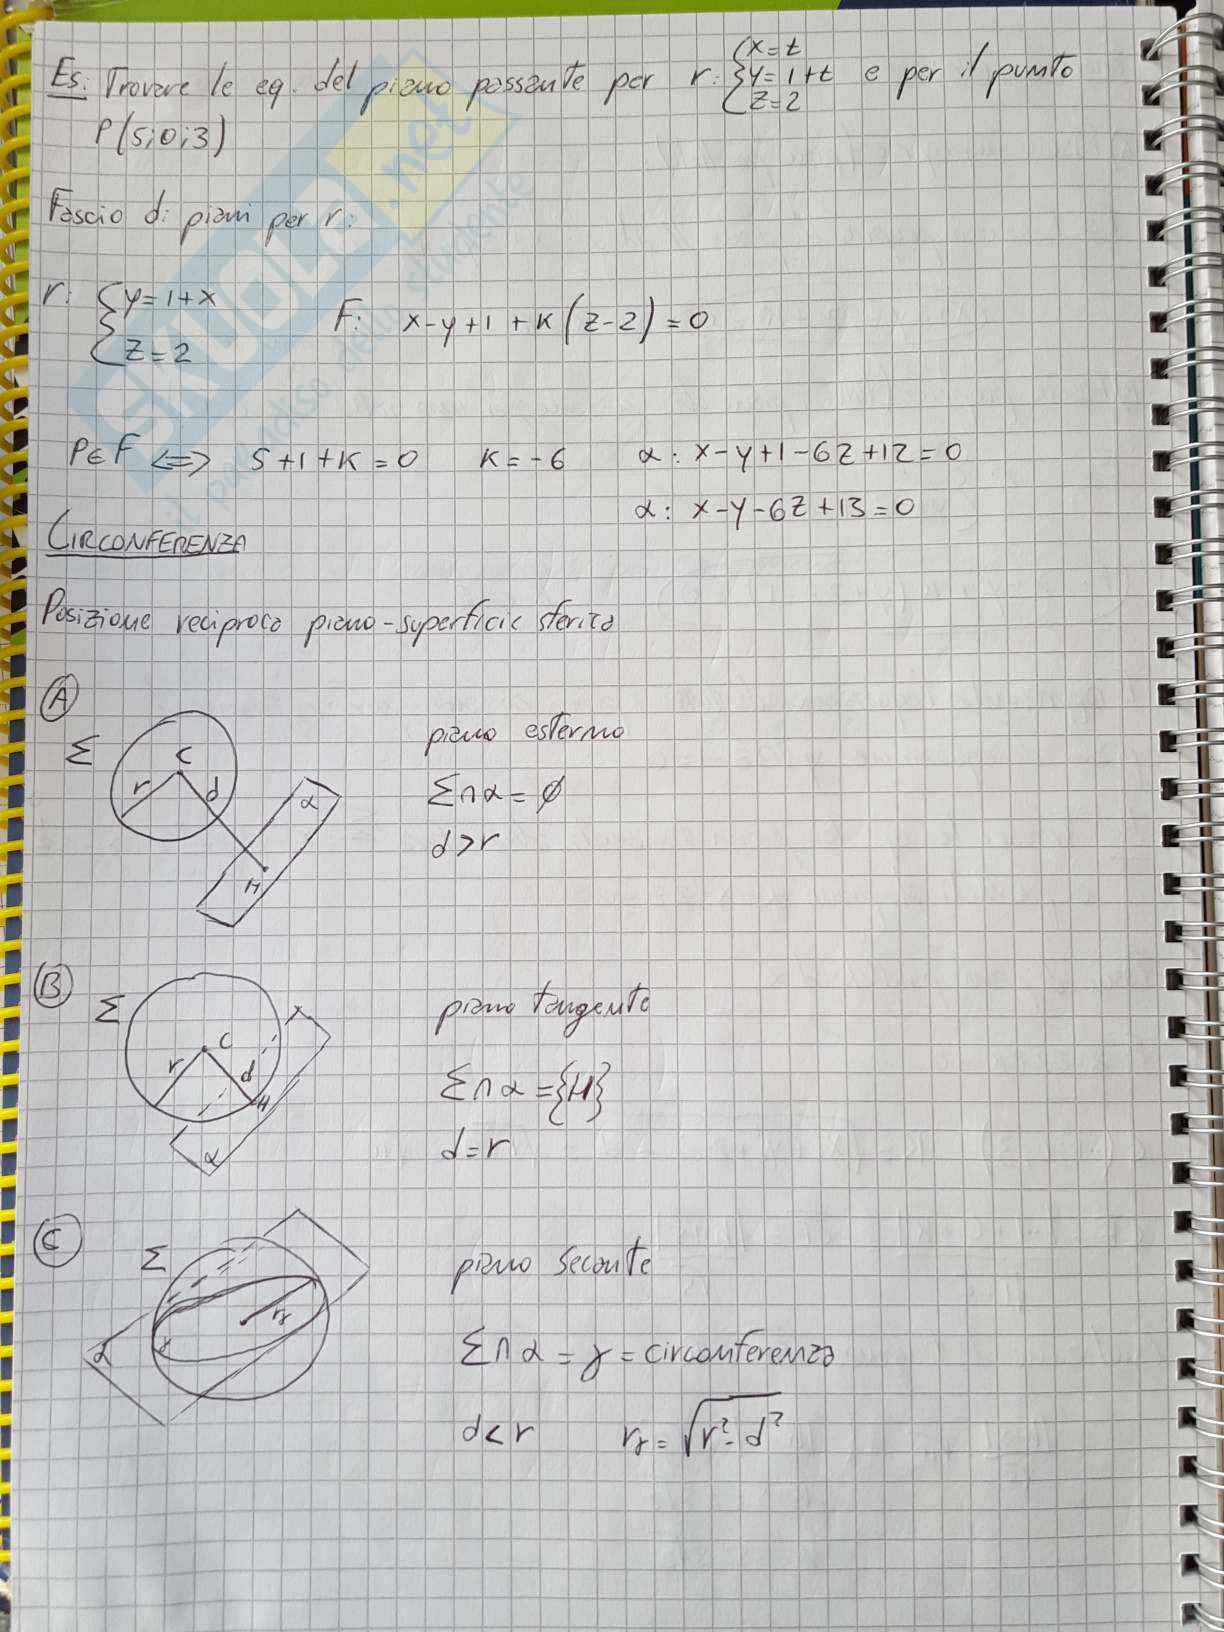 Es: Trovare le eq. del piano passante per r: { x=t
y=1+t
z=2 e per il punto
P(5;0;3)
Fascio di piani per r:
r: { y=1+x
z=2
F: x-y+1+K(z-2)=0
P∈F ⟺ 5+1+K=0 K=-6 α: x-y+1-6z+12=0
α: x-y-6z+13=0
CIRCONFERENZA
Posizione reciproca piano-superficie sferica
A
Σ C r d α H
piano esterno
Σ∩α=∅
d>r
B
Σ C r d H α
piano tangente
Σ∩α={H}
d=r
C
Σ rγ γ α
piano secante
Σ∩α=γ=circonferenza
d<r rγ=√r²-d²
SKUOLA.net
il paradiso dello studente